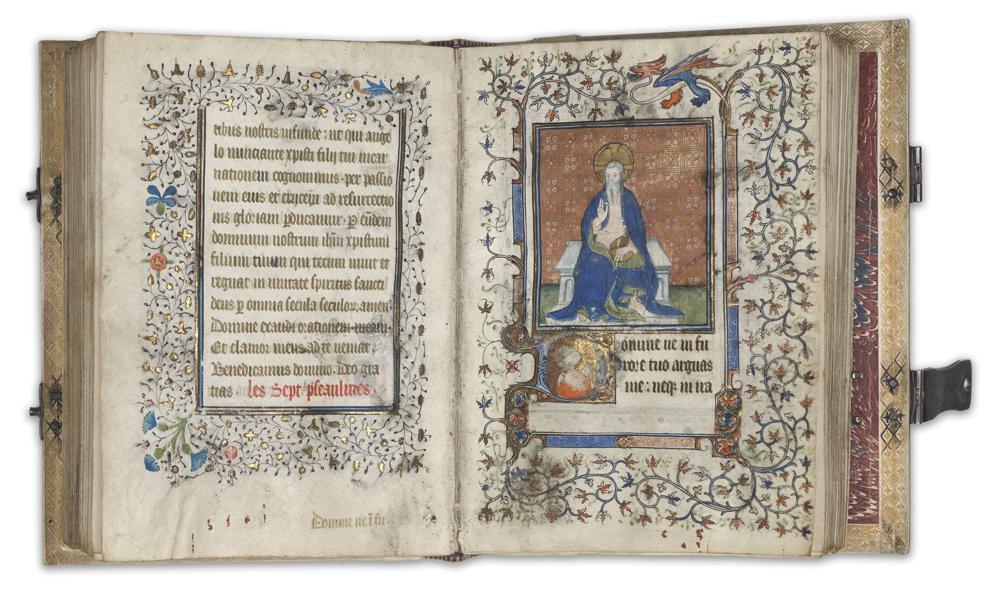 tibus nostris infunde: ut qui ange
lo nunciante xpisti filij tui incar
nationem cognouimus. per passio
nem eius et crucem ad resurrectio
nis gloriam perducamur. P eūdem
dominum nostrum ihm xpistum
filium tuum qui tecum uiuit et
regnat in unitate spiritus sancti
deus p omnia secula seculor. amen
Domine exaudi orationem meam.
Et clamor meus ad te ueniat.
Benedicamus domino. Deo gra
tias. les Sept pseaulmes
Domine ne ī fu
omine ne in fu
rore tuo arguas
me: neq in ira